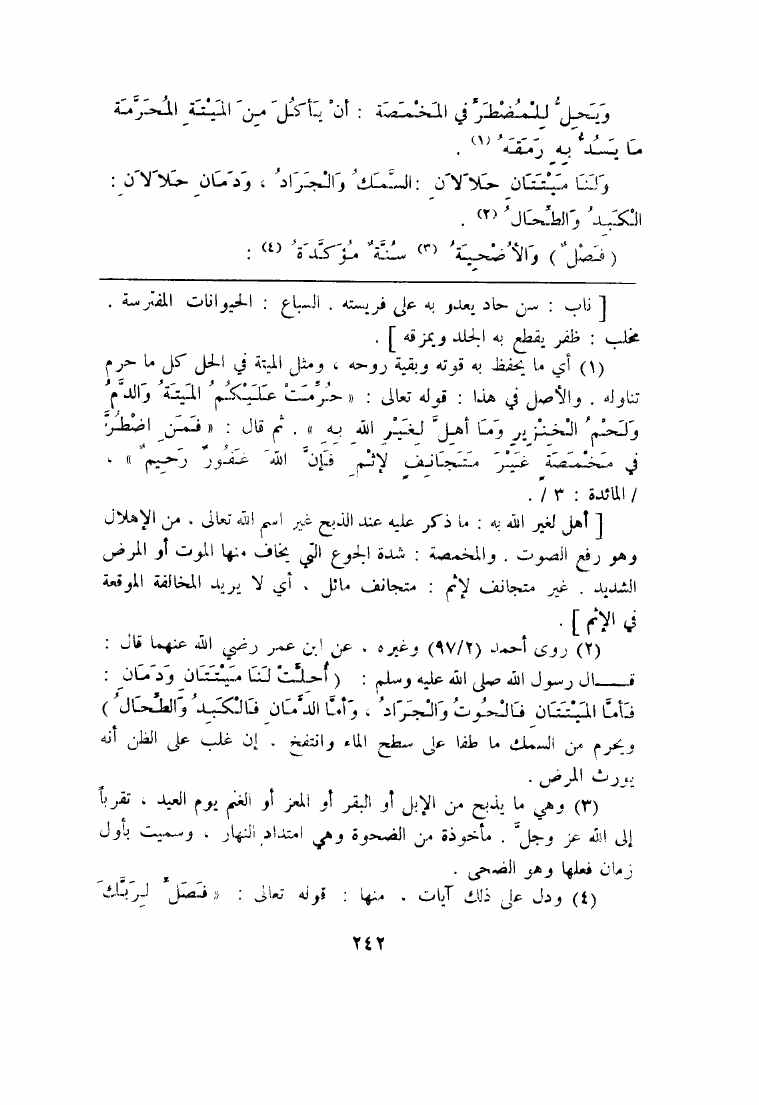 وَيَحِلُّ لِلْمُضْطَرِّ في المَخْمَصَة : أنْ يَأكُلَ مِنَ المَيْتَةِ المُحَرَّمَة
مَا يَسُدُّ بِهِ رَمَقَهُ (١) .
وَلَنَا مَيْتَتَانِ حَلالَانِ : السَّمَكُ وَالْجَرَادُ ، وَدَمَانِ حَلالَانِ :
الْكَبِدُ وَالطِّحَالُ (٢) .
( فَصْلٌ ) وَالأُضْحِيَةُ (٣) سُنَّةٌ مُؤَكَّدَةٌ (٤) :
[ ناب : سن حاد يعدو به على فريسته . السباع : الحيوانات المفترسة .
مخلب : ظفر يقطع به الجلد ويمزقه ] .
(١) أي ما يحفظ به قوته وبقية روحه ، ومثل الميتة في الحل كل ما حرم
تناوله . والأصل في هذا : قوله تعالى : « حُرِّمَتْ عَلَيْكُمُ المَيْتَةُ وَالدَّمُ
وَلَحْمُ الْخِنْزِيرِ وَمَا أُهِلَّ لِغَيْرِ اللهِ بِهِ » . ثم قال : « فَمَنِ اضْطُرَّ
في مَخْمَصَةٍ غَيْرَ مُتَجَانِفٍ لِإثْمٍ فَإنَّ اللهَ غَفُورٌ رَحِيمٌ » .
/ المائدة : ٣ / .
[ أهل لغير الله به : ما ذكر عليه عند الذبح غير اسم الله تعالى . من الإهلال
وهو رفع الصوت . والمخمصة : شدة الجوع التي يخاف منها الموت أو المرض
الشديد . غير متجانف لإثم : متجانف مائل . أي لا يريد المخالفة الموقعة
في الإثم ] .
(٢) روى أحمد (٩٧/٢) وغيره . عن ابن عمر رضي الله عنهما قال :
قـــال رسول الله صلى الله عليه وسلم : ( أُحِلَّتْ لَنَا مَيْتَتَانِ وَدَمَانِ :
فَأَمَّا المَيْتَتَانِ فَالْحُوتُ وَالْجَرَادُ ، وَأَمَّا الدَّمَانِ فَالْكَبِدُ وَالطِّحَالُ )
ويحرم من السمك ما طفا على سطح الماء وانتفخ . إن غلب على الظن أنه
يورث المرض .
(٣) وهي ما يذبح من الإبل أو البقر أو المعز أو الغنم يوم العيد ، تقرباً
إلى الله عز وجلَّ . مأخوذة من الضحوة وهي امتداد النهار . وسميت بأول
زمان فعلها وهو الضحى .
(٤) ودل على ذلك آيات . منها : قوله تعالى : « فَصَلِّ لِرَبِّكَ
٢٤٢